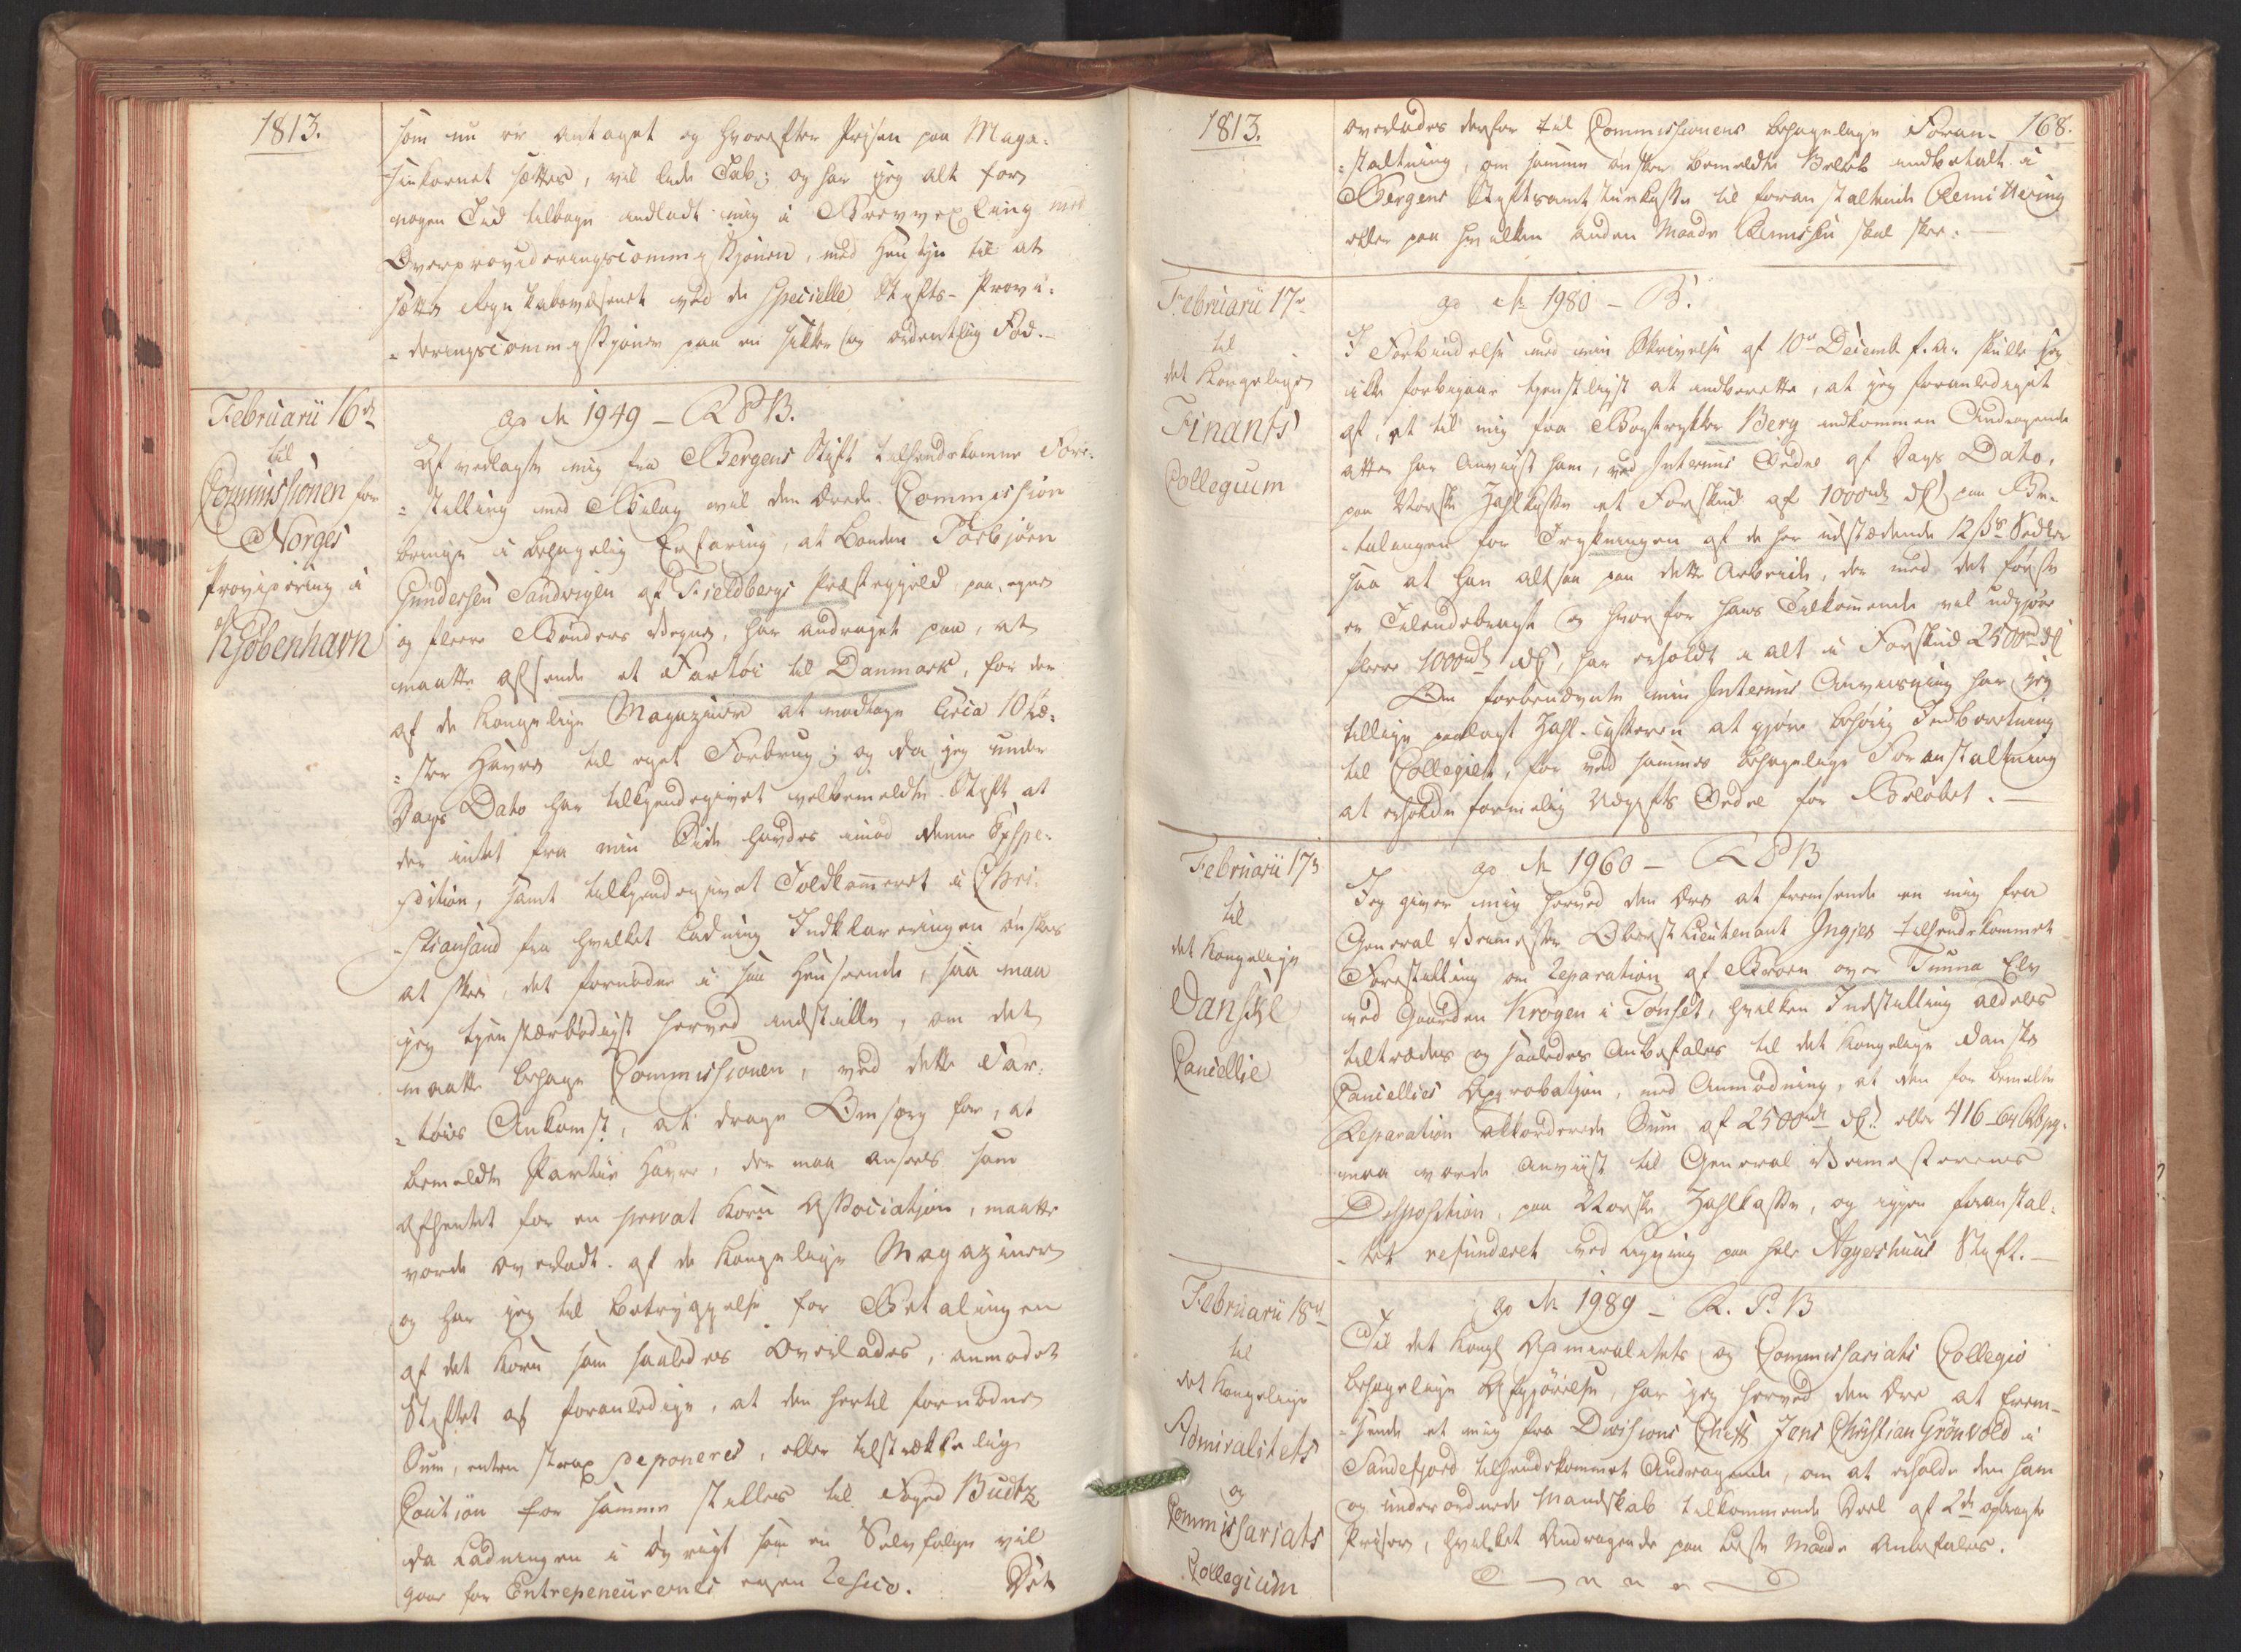 1813.
som nu er antaget og hvorefter Prisen paa Maga-
sinkornet sættes, vil lide Tab; og har jeg alt for
nogen Tid tilbage indladt mig i Brevvexling med
Overprovideringscommissjonen, med Hensyn til at
sætte Regnskabsvæsenet ved de specielle Stifts-Provi-
-deringscommissjoner paa en sikker og ordentlig Fod.-
Februarii 16de
til
Commissionen for
Norges
Provisering i
Kjøbenhavn
ap No 1949 - R P B.
Af vedlagte mig fra Bergens Stift tilsendekomne Fore-
-stilling med Bilag vil den Ærede Commission
bringe i behagelig Erfaring, at Bonden Torbjørn
Gundersen Sandvigen af Fieldbergs Præstegjeld paa egne
og flere Bønders Vegne, har andraget paa, at
maatte afsende et Fartøi til Danmark, for der
af de Kongelige Magaziner at modtage circa 10 Læ-
-ster Havre til eget Forbrug; og da jeg under
Dags Dato har tilkjendegivet velbemeldte Stift at
der intet fra min Side havdes imod denne Expe-
dition, samt tilkjendegivet Toldkammeret i Chri-
-stiansand fra hvilket Ladning Indklareringen ønskes
at skee, det fornødne i saa Henseende, saa maa
jeg tjenstærbødigst herved indstille, om det
maatte behage Commissionen, ved dette Far-
-tøies Ankomst, at drage Omsorg for, at
bemeldte Partie Havre, der maa ansees som
afhentet for en privat Korn Association, maatte
vorde overladt af de Kongelige Magaziner
og har jeg til Betryggelse for Betalingen
af det Korn som saaledes overlades, anmodet
Stiftet at foranledige, at den hertil fornødne
Sum, enten strax deponeres, eller tilstrækkelig
Caution for samme stilles til Foged Budtz
da Ladningen i øvrigt som en Selvfølge vil
gaae for Entrepeneurernes egen Resico.
Det
1813.
168.
overlades derfor til Commissionens behagelige Foran-
-staltning, om samme ønsker bemeldte Beløb indbetalt i
Bergens Stiftsamtstuekasse til foranstaltende Remittering
eller paa hvilken anden Maade Remissen skal skee.-
Februarii 17de
til
det Kongelige
Finants
Collegium
ap No 1980 - B.
I Forbindelse med min Skrivelse af 10de Decemb. f. A. skulle jeg
ikke forbigaae tjenstligst at indberette, at jeg foranlediget
af, et til mig fra Bogtrykker Berg indkommen Andragende
atter har anviist ham, ved Interims Ordre af Dags Dato,
paa Norske Zahlkasse et Forskud af 1000 rd D.C. paa Be-
-talingen for Trykningen af de her udstædende 12 s Sedler
saa at han altsaa paa dette Arbeide, der med det første
er Tilendebragt og hvorfor hans Tilkommende vil udgjøre
flere 1000 rd D.C., har erholdt i alt i Forskud 2500 rd D.C.
Om forbenævnte min Interims Anviisning har jeg
tillige paalagt Zahl-Casseren at gjøre behørig Indberetning
til Collegiet, for ved sammes behagelige Foranstaltning
at erholde formelig Udgifts Ordre for Beløbet.-
Februarii 17de
til
det Kongelige
Danske
Cancellie
ap No 1960 - R P B
Jeg giver mig herved den Ære at fremsende en mig fra
General Veimester Oberst Lieutenant Ingier tilsendekommet
Forestilling om Reparation af Broen over Tunna Elv
ved Gaarden Krogen i Tønset, hvilken Indstilling aldeles
tiltrædes og saaledes anbefales til det Kongelige danske
Cancellies Approbation, med Anmodning, at den for bemeldte
Reparation akkorderede Sum af 2500 rd D.C. eller 416 - 64 Rbpg.
maa vorde anviist til General Veimesterens
Disposition paa Norske Zahlkasse, og igjen foranstal-
-tet refunderet ved Ligning paa hele Aggershuus Stift.-
Februarii 18de
til
det Kongelige
Admiralitets
og
Commissariats
Collegium
ap No 1989 - R. P. B
Til det Kongl Admiralitets og Commissariats Collegies
behagelige Afgjørelse, har jeg herved den Ære at frem-
-sende et mig fra Divisions Cheff Jens Christian Grönvold i
Sandefjord tilsendekommet Andragende, om at erholde den ham
og underordnede Mandskab tilkommende Deel af 2de opbragte
Priser, hvilket Andragende paa bedste Maade anbefales.